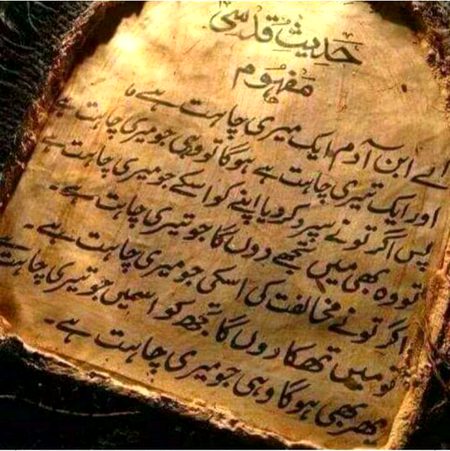 حدیثِ قدسی
مفہوم
اے ابن آدم ایک میری چاہت ہے
اور ایک تیری چاہت ہے ہوگا تو وہی جو میری چاہت ہے
پس اگر تونے سپرد کر دیا اپنے کو اسکے جو میری چاہت ہے
تو وہ بھی میں تجھے دوں گا جو تیری چاہت ہے۔
اگر تونے مخالفت کی اسکی جو میری چاہت ہے۔
تو میں تھکا دوں گا تجھ کو اسمیں جو تیری چاہت ہے
پھر بھی ہوگا وہی جو میری چاہت ہے۔